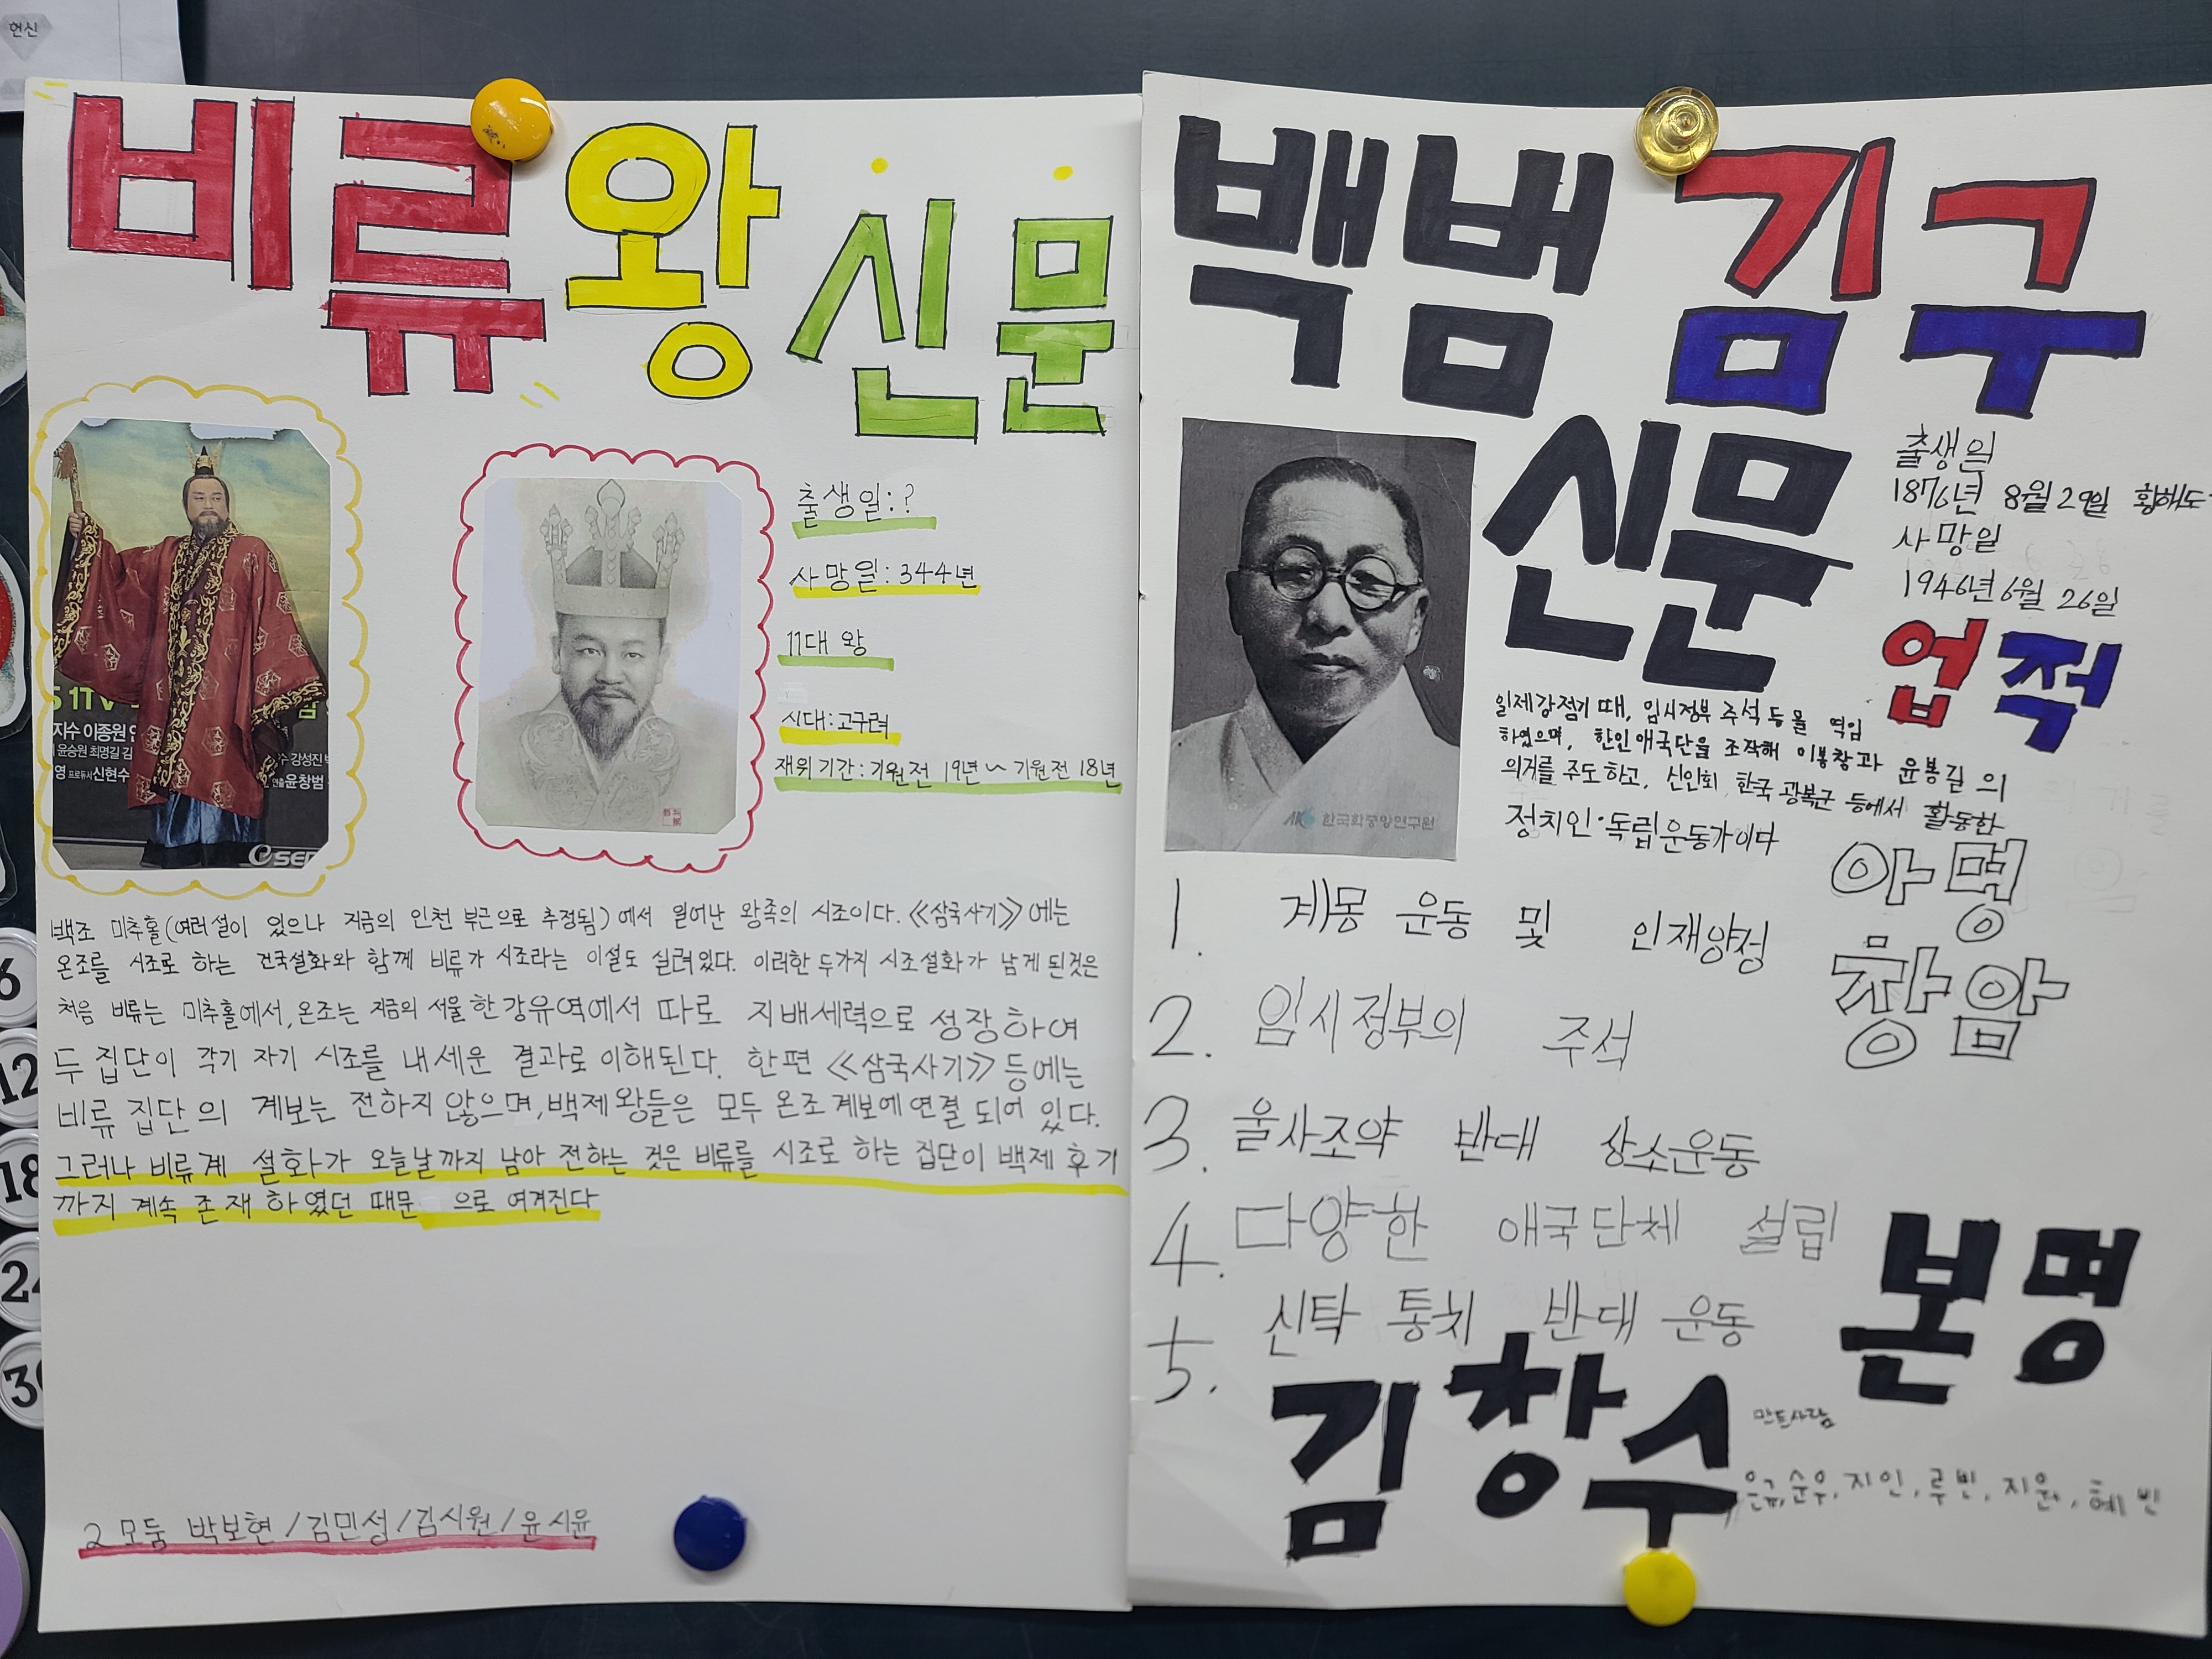 헌신
비류왕신문
출생일:?
사망일:344년
11대 왕
시대:고구려
재위기간:기원전 19년~기원전 18년
지수 이종원
윤승원 최명길 김
영 프로듀서 신현수
수 강성진
연출 윤창범
백조 미추홀(여러설이 있으나 지금의 인천 부근으로 추정됨)에서 일어난 왕족의 시조이다. 《삼국사기》에는
온조를 시조로 하는 건국설화와 함께 비류가 시조라는 이설도 실려있다. 이러한 두가지 시조설화가 남게 된것은
처음 비류는 미추홀에서, 온조는 지금의 서울 한강유역에서 따로 지배세력으로 성장하여
두 집단이 각기 자기 시조를 내세운 결과로 이해된다. 한편 《삼국사기》 등에는
비류 집단의 계보는 전하지 않으며, 백제왕들은 모두 온조 계보에 연결 되어 있다.
그러나 비류계 설화가 오늘날까지 남아 전하는 것은 비류를 시조로 하는 집단이 백제 후기
까지 계속 존재 하였던 때문 으로 여겨진다
2 모둠 박보현/김민성/김시원/윤시윤
6
12
18
24
30
백범 김구
신문
출생일
1876년 8월 29일 황해도
사망일
1946년 6월 26일
업적
일제강점기 때, 임시정부 주석 등을 역임
하였으며, 한인애국단을 조직해 이봉창과 윤봉길의
의거를 주도하고, 신인회, 한국 광복군 등에서 활동한
정치인·독립운동가이다
한국학중앙연구원
아명
창암
1. 계몽 운동 및 인재양성
2. 임시정부의 주석
3. 을사조약 반대 상소운동
4. 다양한 애국단체 설립
5. 신탁 통치 반대 운동
본명
김창수
만든사람
은규, 순우, 지인, 루빈, 지윤, 혜빈